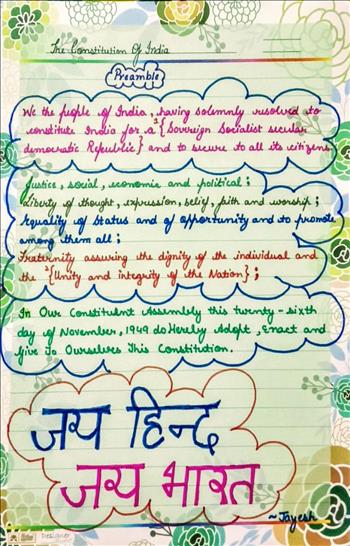 The Constitution Of India
Preamble
We the people of India, having solemnly resolved to
constitute India for a ¹{Sovereign Socialist secular
democratic Republic} and to secure to all its citizens
Justice, social, economic and political;
Liberty of thought, expression, belief, faith and worship;
Equality of Status and of opportunity and to promote
among them all;
Fraternity assuring the dignity of the individual and
the ²{Unity and integrity of the Nation};
In Our Constituent Assembly this twenty-sixth
day of November, 1949 do Hereby Adopt, Enact and
Give To Ourselves This Constitution.
जय हिन्द
जय भारत
~Jayesh
Designer